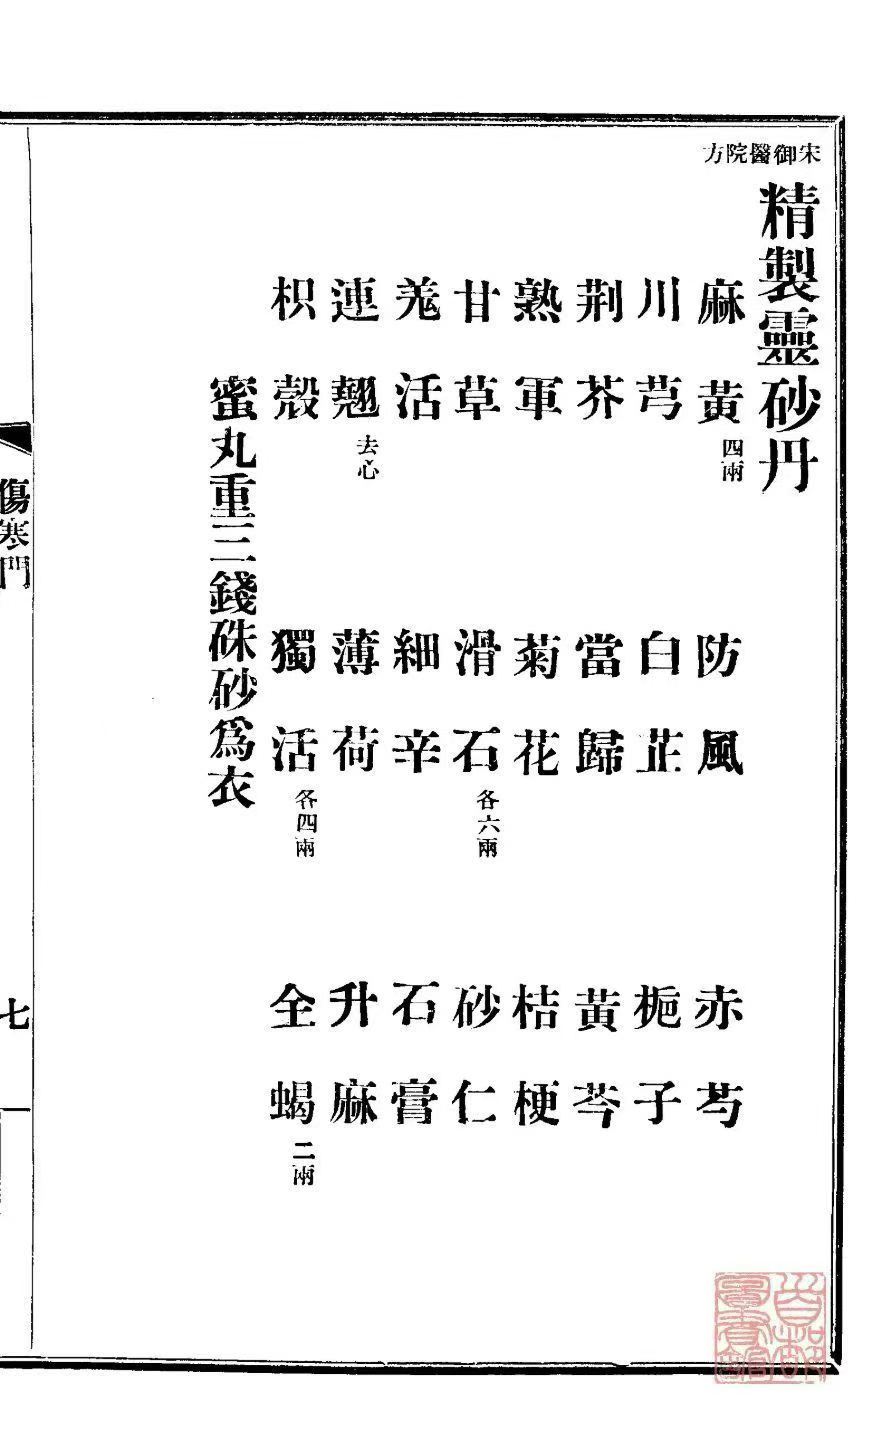 宋御醫院方
精製靈砂丹
麻黃四兩 防風 赤芍
川芎 白芷 梔子
荆芥 當歸 黃芩
熟軍 菊花 桔梗
甘草 滑石各六兩 砂仁
羗活 細辛 石膏
連翹去心 薄荷 升麻
枳殼 獨活各四兩 全蝎二兩
蜜丸重三錢硃砂爲衣
傷寒門
七
首都圖書館藏